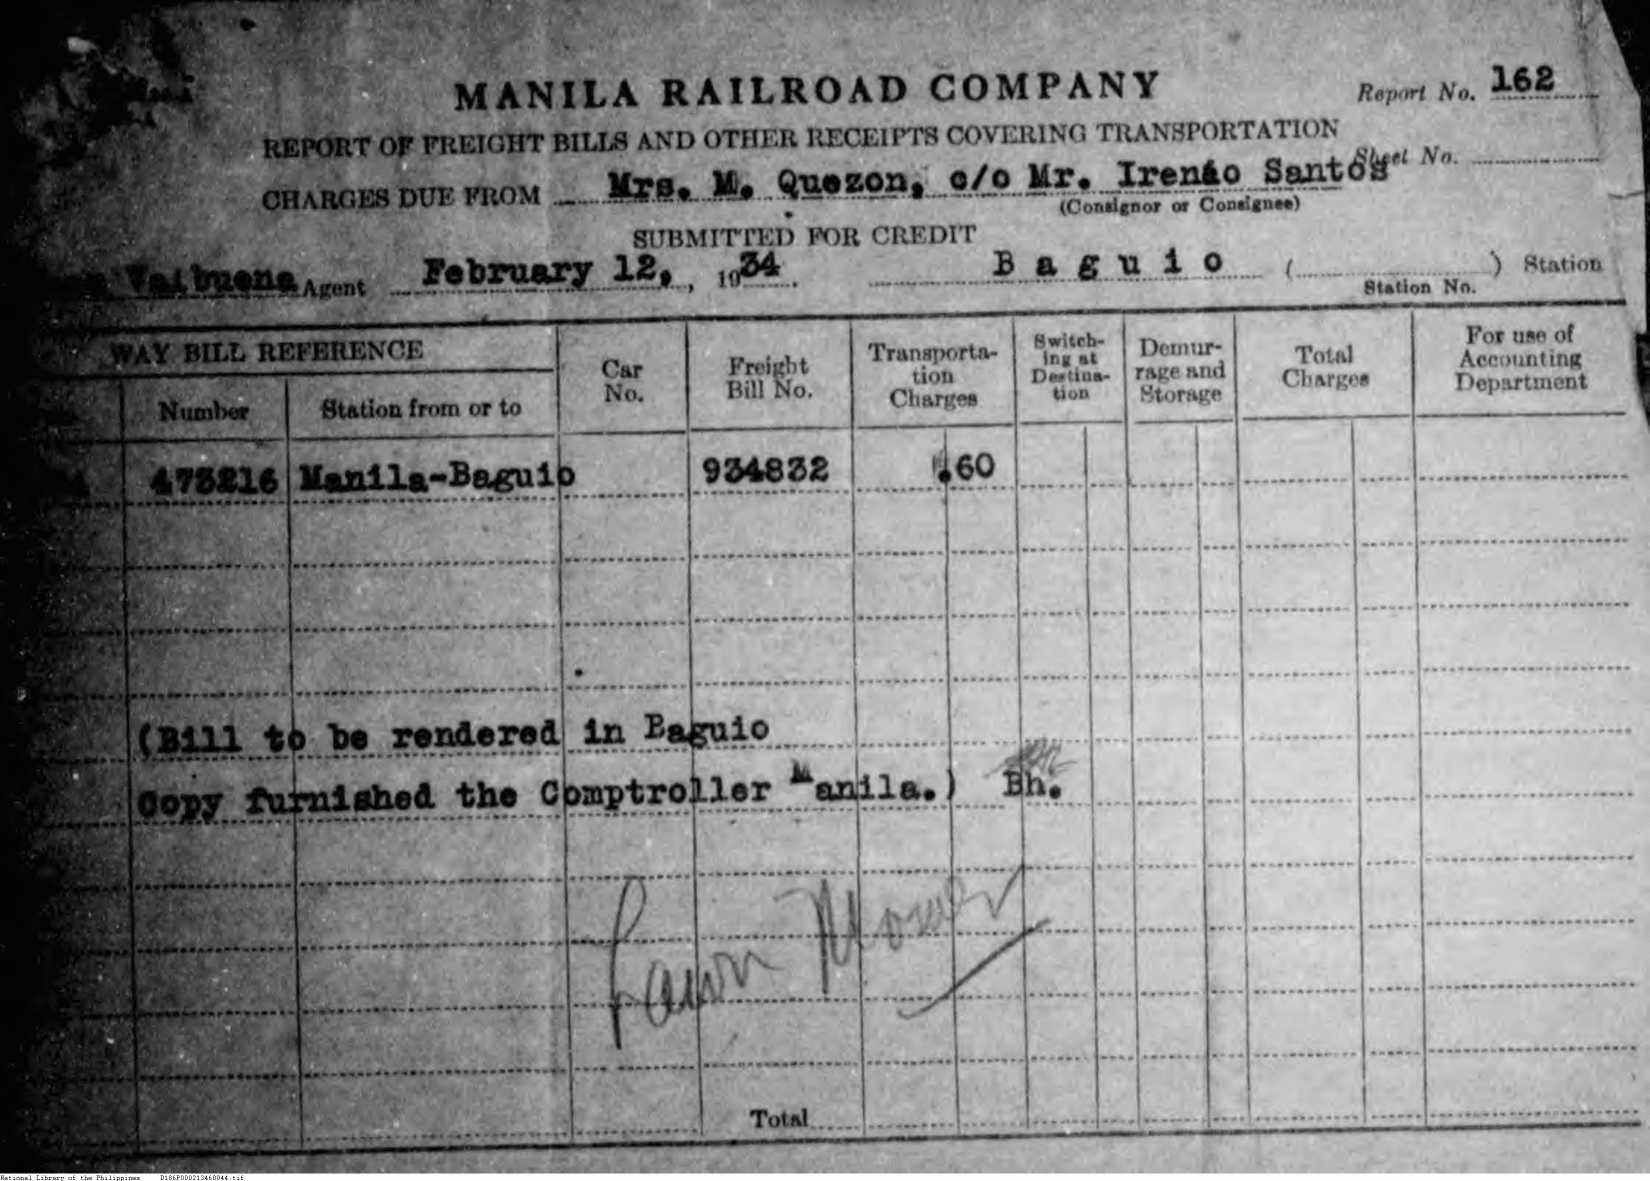 MANILA RAILROAD COMPANY
Report No. 162
REPORT OF FREIGHT BILLS AND OTHER RECEIPTS COVERING TRANSPORTATION
Sheet No.
CHARGES DUE FROM Mrs. M. Quezon, c/o Mr. Irenáo Santos
(Consignor or Consignee)
SUBMITTED FOR CREDIT
Valbuena Agent February 12, , 1934. B a g u i o ( ) Station
Station No.
WAY BILL REFERENCE
Number
Station from or to
Car
No.
Freight
Bill No.
Transporta-
tion
Charges
Switch-
ing at
Destina-
tion
Demur-
rage and
Storage
Total
Charges
For use of
Accounting
Department
473216 Manila-Baguio 934832 .60
(Bill to be rendered in Baguio
Copy furnished the Comptroller Manila.) Bh.
Total
National Library of the Philippines D186P000213460044.tif